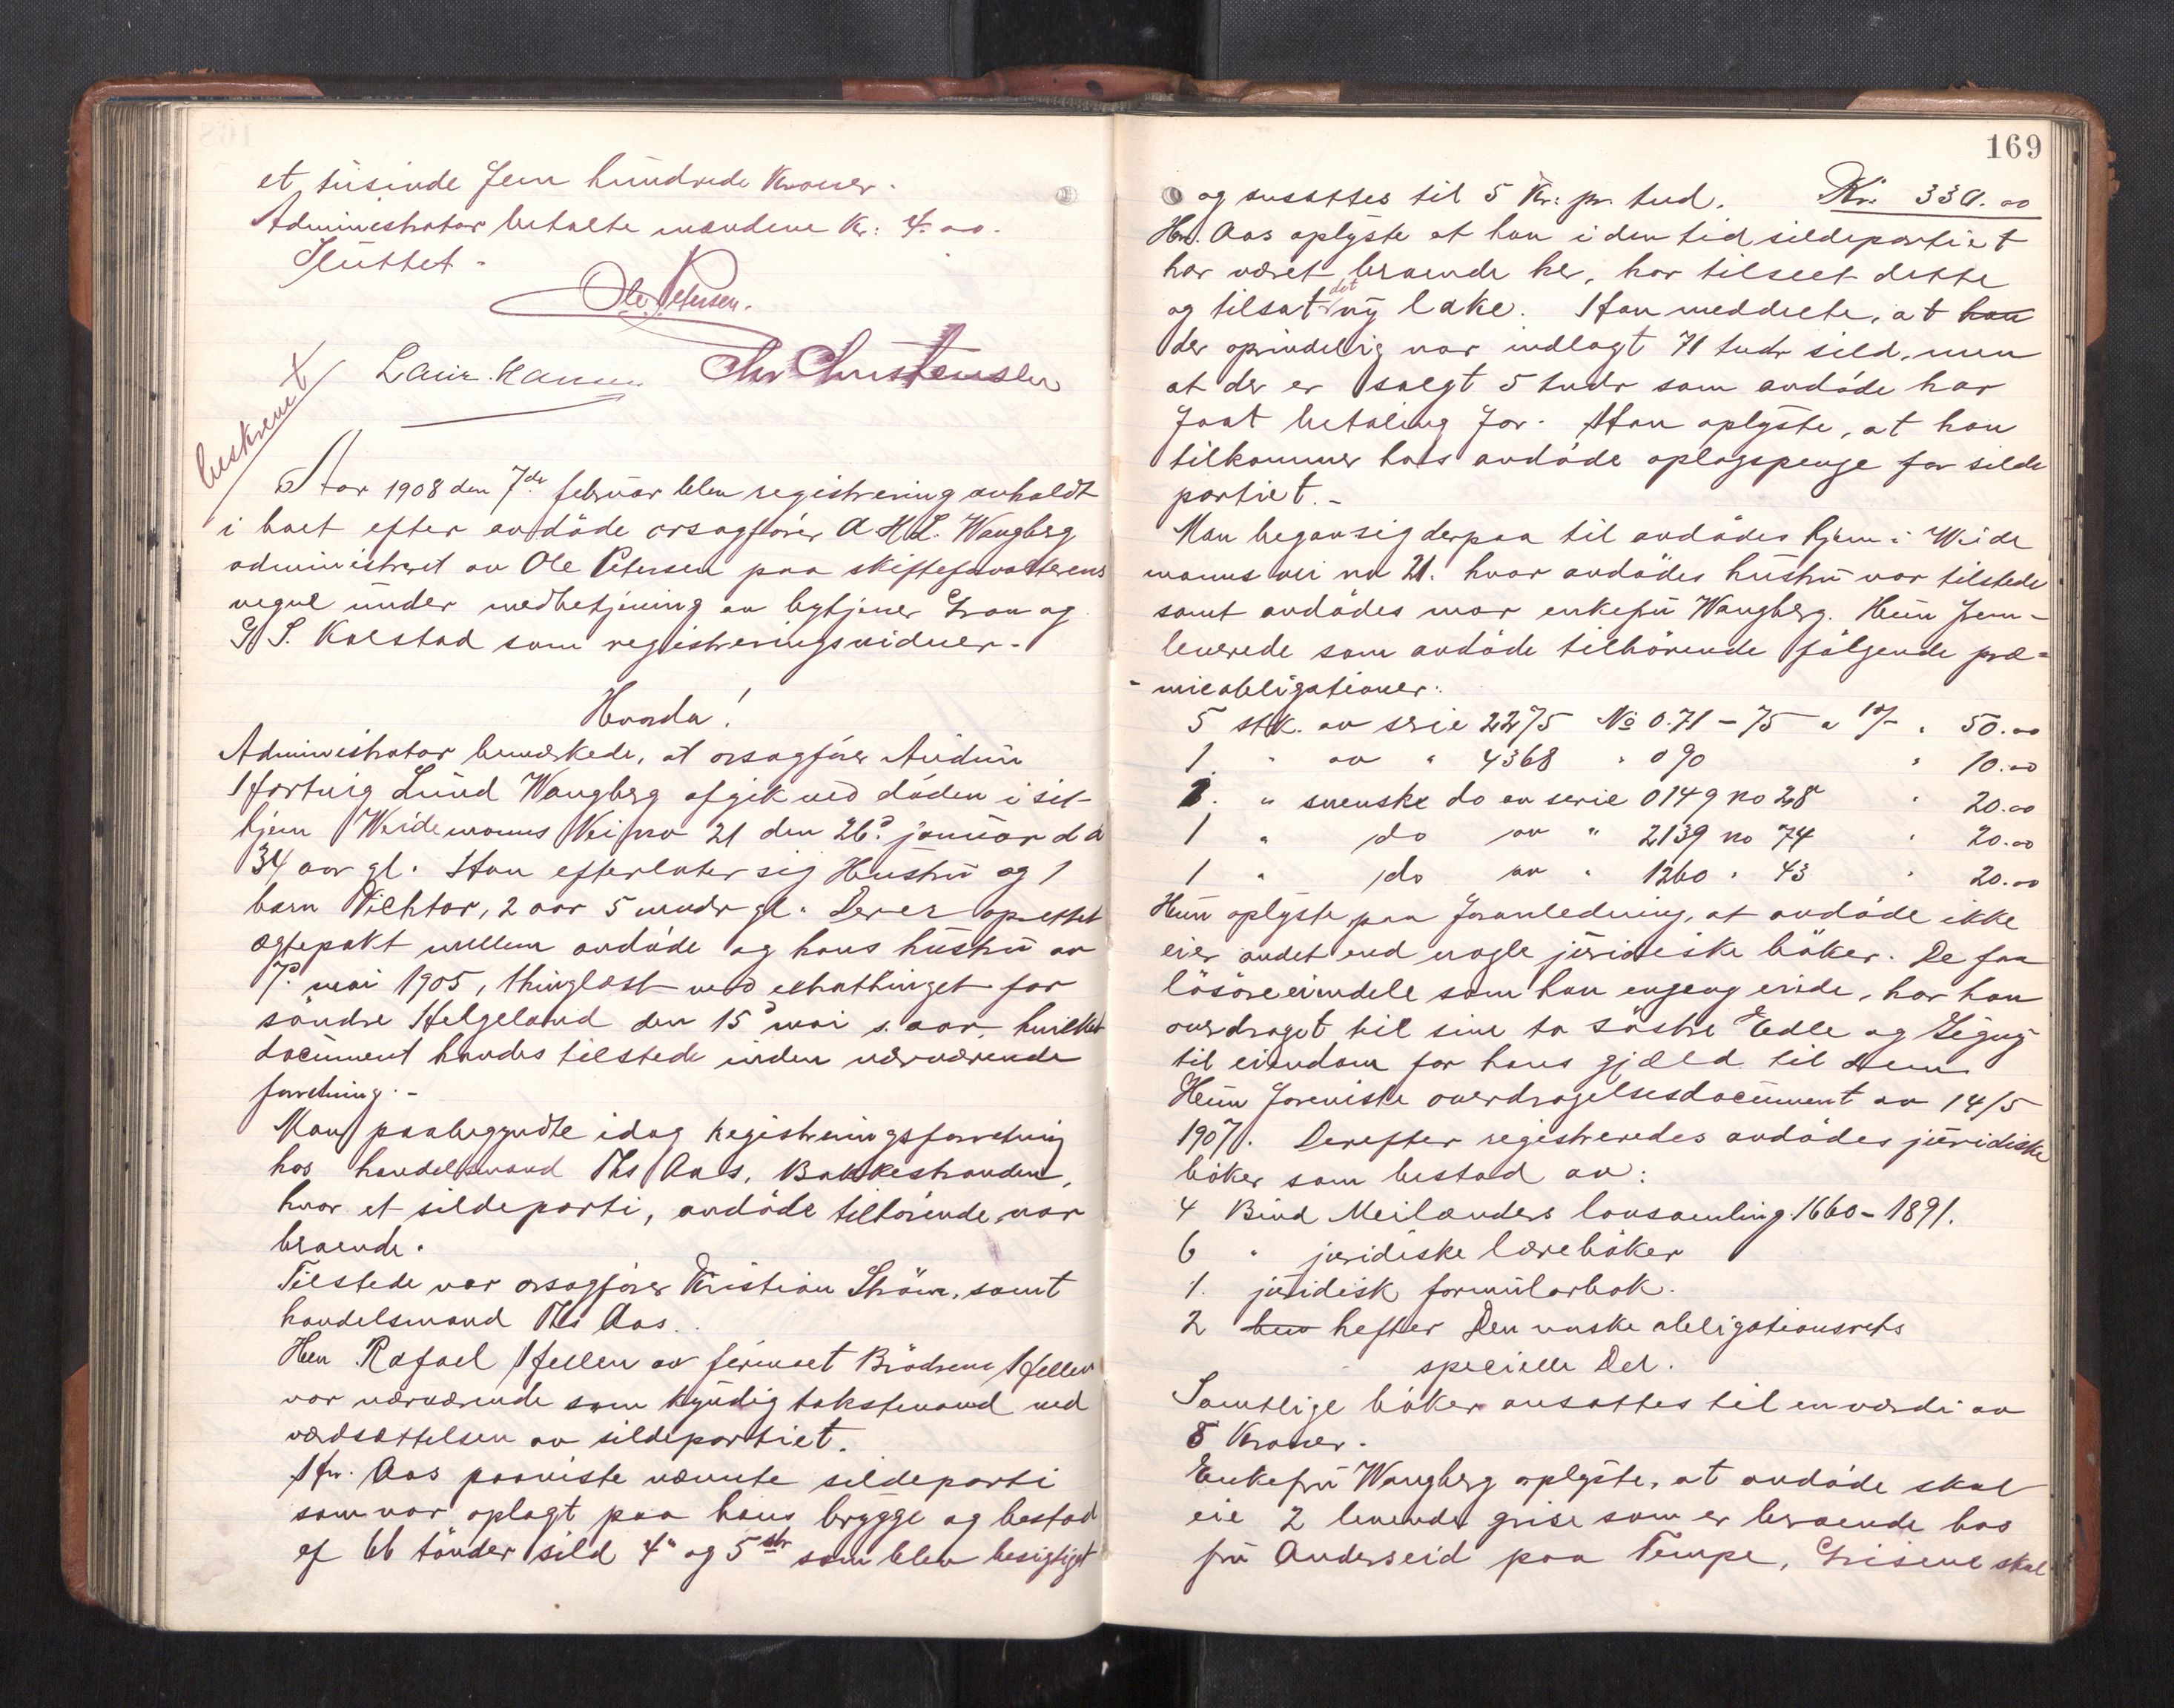 et tusinde fem hundrede Kroner.
Administrator betalte mændene Kr: 4.00.
Sluttet.
Ole Petersen.
Chr Christensen
beskrevet
Aar 1908 den 7de februar blev registrering avholdt
i boet efter avdöde orsagförer A H L. Wangberg
administreret av Ole Petersen paa skifteforvalterens
vegne under medbetjening av bytjener Gran og
S. Kolstad som registreringsvidner.
Hvorda!
Administrator bemerkede, at orsagförer Audun
Hartvig Lund Wangberg afgik ved döden i sit
hjem Weidemanns Vei no 21 den 26d januar d a
34 aar gl. Han efterlater sig Hustru og 1
barn Vicktor, 2 aar 5 mndr gl. Der er oprettet
ægtepakt mellem avdöde og hans hustru av
7d mai 1905, thinglæst ved extrathinget for
söndre Helgeland den 15d mai s. aar, hvilket
document havdes tilstede under nærværende
forretning.-
Man paabegyndte idag Registreringsforretning
hos handelsmand Ths Aas, Bakkestranden,
hvor et sildeparti, avdöde tilhörende, var
beroende.
Tilstede var orsagförer Kristian Ström, samt
handelsmand Ths Aas.
Herr Rafael Hellen av firmaet Brödrene Hellen
var nærværende som kyndig takstmand ved
værdsættelsen av sildepartiet.
Hr. Aas paaviste nævnte sildeparti
som var oplagt paa hans brygge og bestod
af 66 tönder sild 4" og 5 str som blev besigtiget
169
og ansattes til 5 Kr: pr. tnd. Kr. 330.00
Hr. Aas oplyste at han i den tid sildepartiet
har været beroende her, har tilseet dette
og tilsat det ny lake. Han meddelte, at han
der oprindelig var indlagt 71 tndr sild, men
at der er solgt 5 tndr som avdöde har
faat betaling for. Han oplyste, at han
tilkommer hos avdöde oplagspenge for silde
partiet.-
Man begav sig derpaa til avdödes hjem i Weide
manns vei no 21. hvor avdödes hustru var tilstede
samt avdödes mor enkefru Wangberg. Hun frem-
leverede som avdöde tilhörende følgende præ=
-mieobligationer:
5 stk. av serie 2275 No 0.71-75 a 10/- " 50.00
1. " av " 4368 " 090 " 10.00
1. " svenske do av serie 0149 no 28 " 20.00
1 " do av " 2139 no 74 " 20.00
1 " do av " 1260 " 43 " 20.00
Hun oplyste paa foranledning, at avdöde ikke
eier andet end nogle juridiske böker. De faa
lösöreeiendele som han engang eiede, har han
overdraget til sine to söstre Edle og Signy
til eiendom for hans gjæld til dem
Hun foreviste overdragelsesdocument av 14/5
1907. Derefter registreredes avdödes juridiske
böker som bestod av:
4 Bind Meilænders lovsamling 1660-1891.
6 " juridiske lærebøker
1. juridisk formularbok.
2 hefter Den norske obligationsrets
specielle Del.
Samtlige böker ansattes til en værdi av
8 Kroner.
Enkefru Wangberg oplyste, at avdöde skal
eie 2 levende grise som er beroende hos
fru Anderseid paa Tempe, Grisene skal